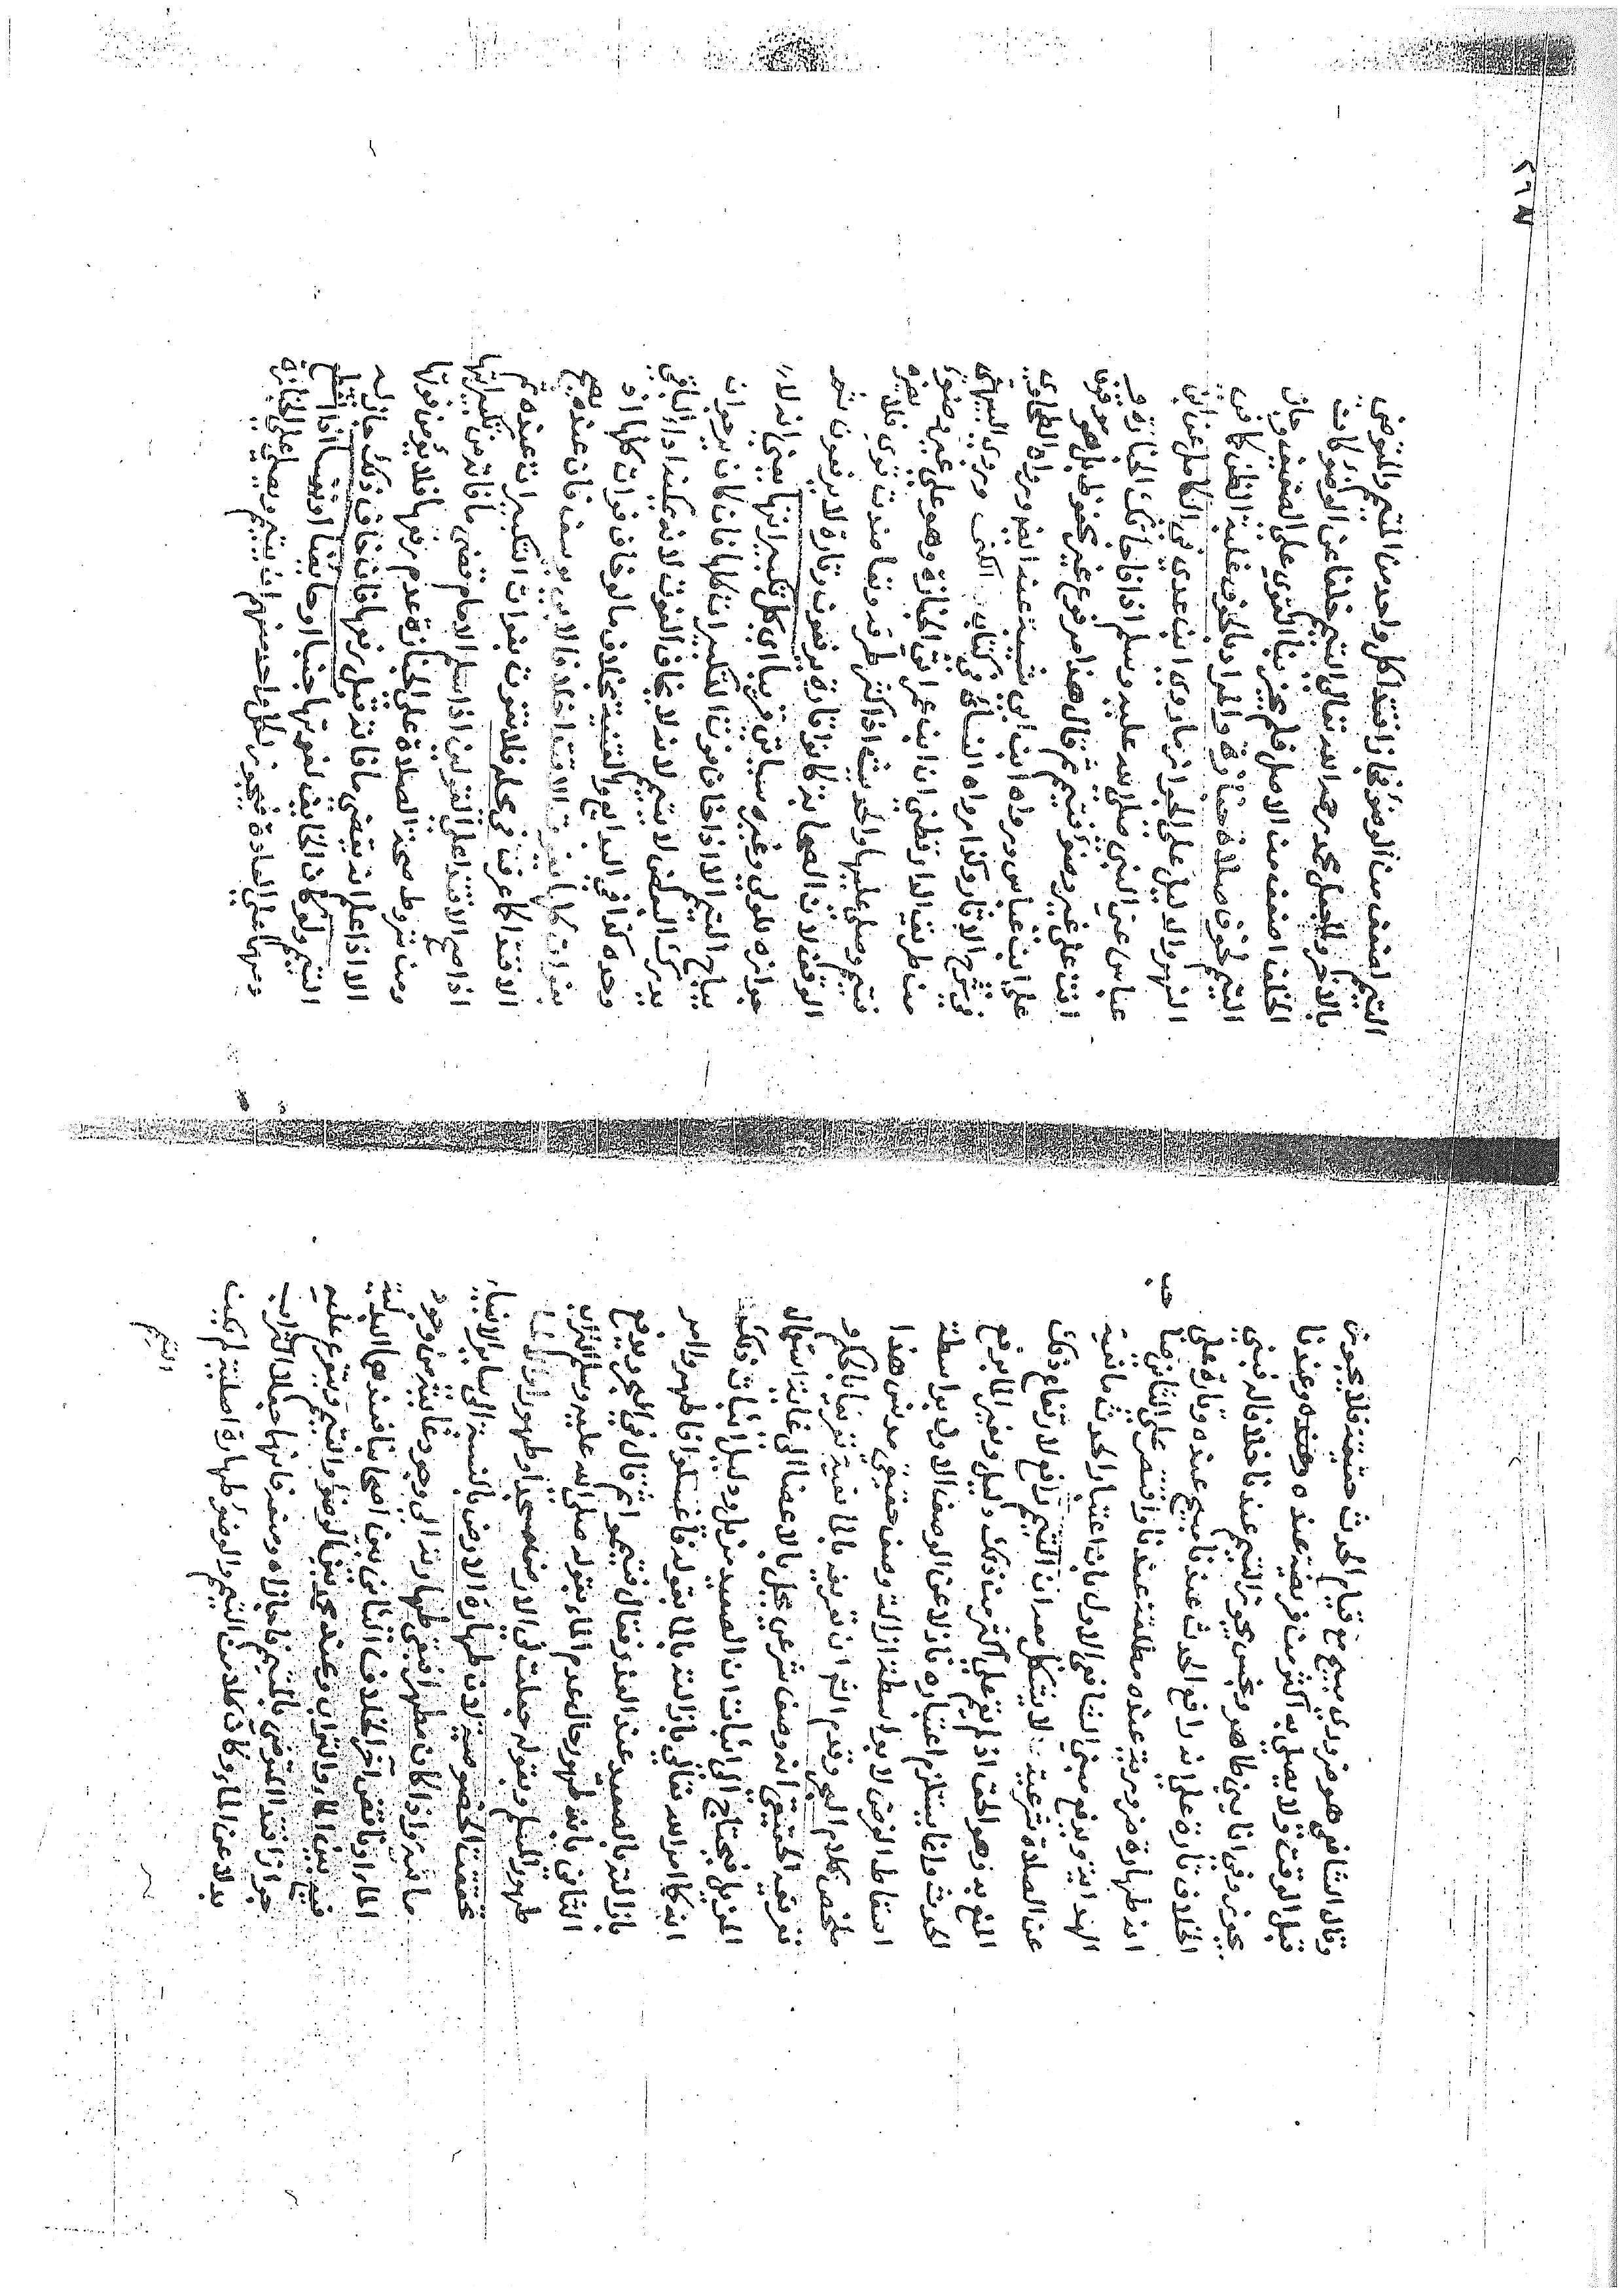 وقال الشافعي هو ضروري مبيح مع قيام الحدث حقيقة فلا يجوز
قبل الوقت ولا يصلي به اكثر من فريضة عنده وعندنا
يجوز وفي اناءين طاهر ونجس يجوز التيمم عندنا خلافا له فبنى
الخلاف تارة على انه رافع الحدث عندنا مبيح عنده وتارة على
انه طهارة ضرورية عنده مطلقة عندنا واقتصر على الثاني صاحب
الهداية ويدفع مبنى الشافعي الاول بان اعتبار الحدث مانعية
عن الصلاة شرعية لا يشكل معه ان التيمم رافع لارتفاع ذلك
المنع به وهو الحق اذ لم يقم على اكثر من ذلك دليل وتغير الماء برفع
الحدث وانما يستلزم اعتباره نازلا عن الوصف الاول بواسطة
اسقاط الفرض لا بواسطة ازالة وصف حقيقي مدنس هذا
ملخص كلام البحر وقدم ان تعريفه بالمانعية تعريف بالحكم و
تعريفه الحقيقي انه وصف شرعي يحل بالاعضاء الى غاية استعمال
المزيل فيحتاج الى اثبات ان الصعيد مزيل ودليل اثبات ذلك
انه كما امر الله تعالى بازالته بالماء بقوله فاغسلوا فاطهروا امر
بازالته بالصعيد عند العذر فقال فتيمموا ثم قال في البحر ويدفع
الثاني بانه طهور حال عدم الماء بقوله صلى الله عليه وسلم التراب
طهور المسلم وبقوله جعلت لي الارض مسجدا وطهورا
تحققت الخصوصية لان طهارة الارض بالنسبة الى سائر الانبياء
ثابتة واذا كان مطهرا فتبقى طهارته الى وجود غايتها من وجود
الماء او ناقض آخر الخلاف الثاني بين اصحابنا فعندهما البدلية
فيه بين الماء والتراب وعند محمد بين الوضوء والتيمم ويتفرع عليه
جواز اقتداء المتوضي بالمتيمم فاجازاه ومنعه فانهما جعلا التراب
بدلا عن الماء وكان كلا من التيمم والوضوء طهارة اصلية لم يكن
التيمم
التيمم اضعف من الوضوء فجاز اقتداء كل واحد من المتيمم والمتوضي
بالآخر والجعل محمد رحمه الله تعالى التيمم خلفا عن الوضوء كانت
الخلف اضعف من الاصل فلم يجز بناء القوي على الضعيف وجاز
التيمم لخوف صلاة جنازة والمراد بالخوف غلبة الظن كما في
النهر والدليل على الجواز ما روى ابن عدي في الكامل عن ابن
عباس عن النبي صلى الله عليه وسلم اذا فاجاتك الجنازة و
انت على غير وضوء فتيمم ثم قال هذا مرفوع غير محفوظ بل هو موقوف
على ابن عباس ورواه ابن ابي شيبة عنه ايضا ورواه الطحاوي
في شرح الاثار وكذا رواه النسائي في كتاب الكنى وروى البيهقي
من طريق الدارقطني ان ابن عمر اتى الجنازة وهو على غير وضوء
فتيمم وصلى عليها والحديث اذا كثر طرقه وتعاضدت قوي فلا يضره
الوقف لان الصحابة كانوا تارة يرفعون وتارة لا يرفعون
جوازه للولي وغيره سياتي قريبا اي كل تكبيراتها يعني انه لا
يباح التيمم الا اذا خاف فوت التكبيرات كلها فان كان يرجو ان
يدرك البعض لا يتيمم لانه لا يخاف الفوت لانه يمكنه اداء الباقي
وحده كذا في البدايع والقنية بخلاف ما لو خاف فوات كلها
بفوات كلها
الاقتداء كما عرف في محله فلا يفوت بفوات التكبيرات عنده ثم
اذا صح الاقتداء على القولين اذا سلم الامام قضى ما فاته من تكبيراتها
ومن شروط صحة الصلاة على الجنازة عدم رفعها فلا يؤمن فوتها
الا اذا علم انه يقضي ما فاته قبل رفعها فان خاف ذلك جاز له
التيمم ولو كان الخايف لفوتها جنبا او حايضا او نفساء
ومنها على العادة فيجوز لكل واحد منهم ان يتيمم ويصلي على الجنازة